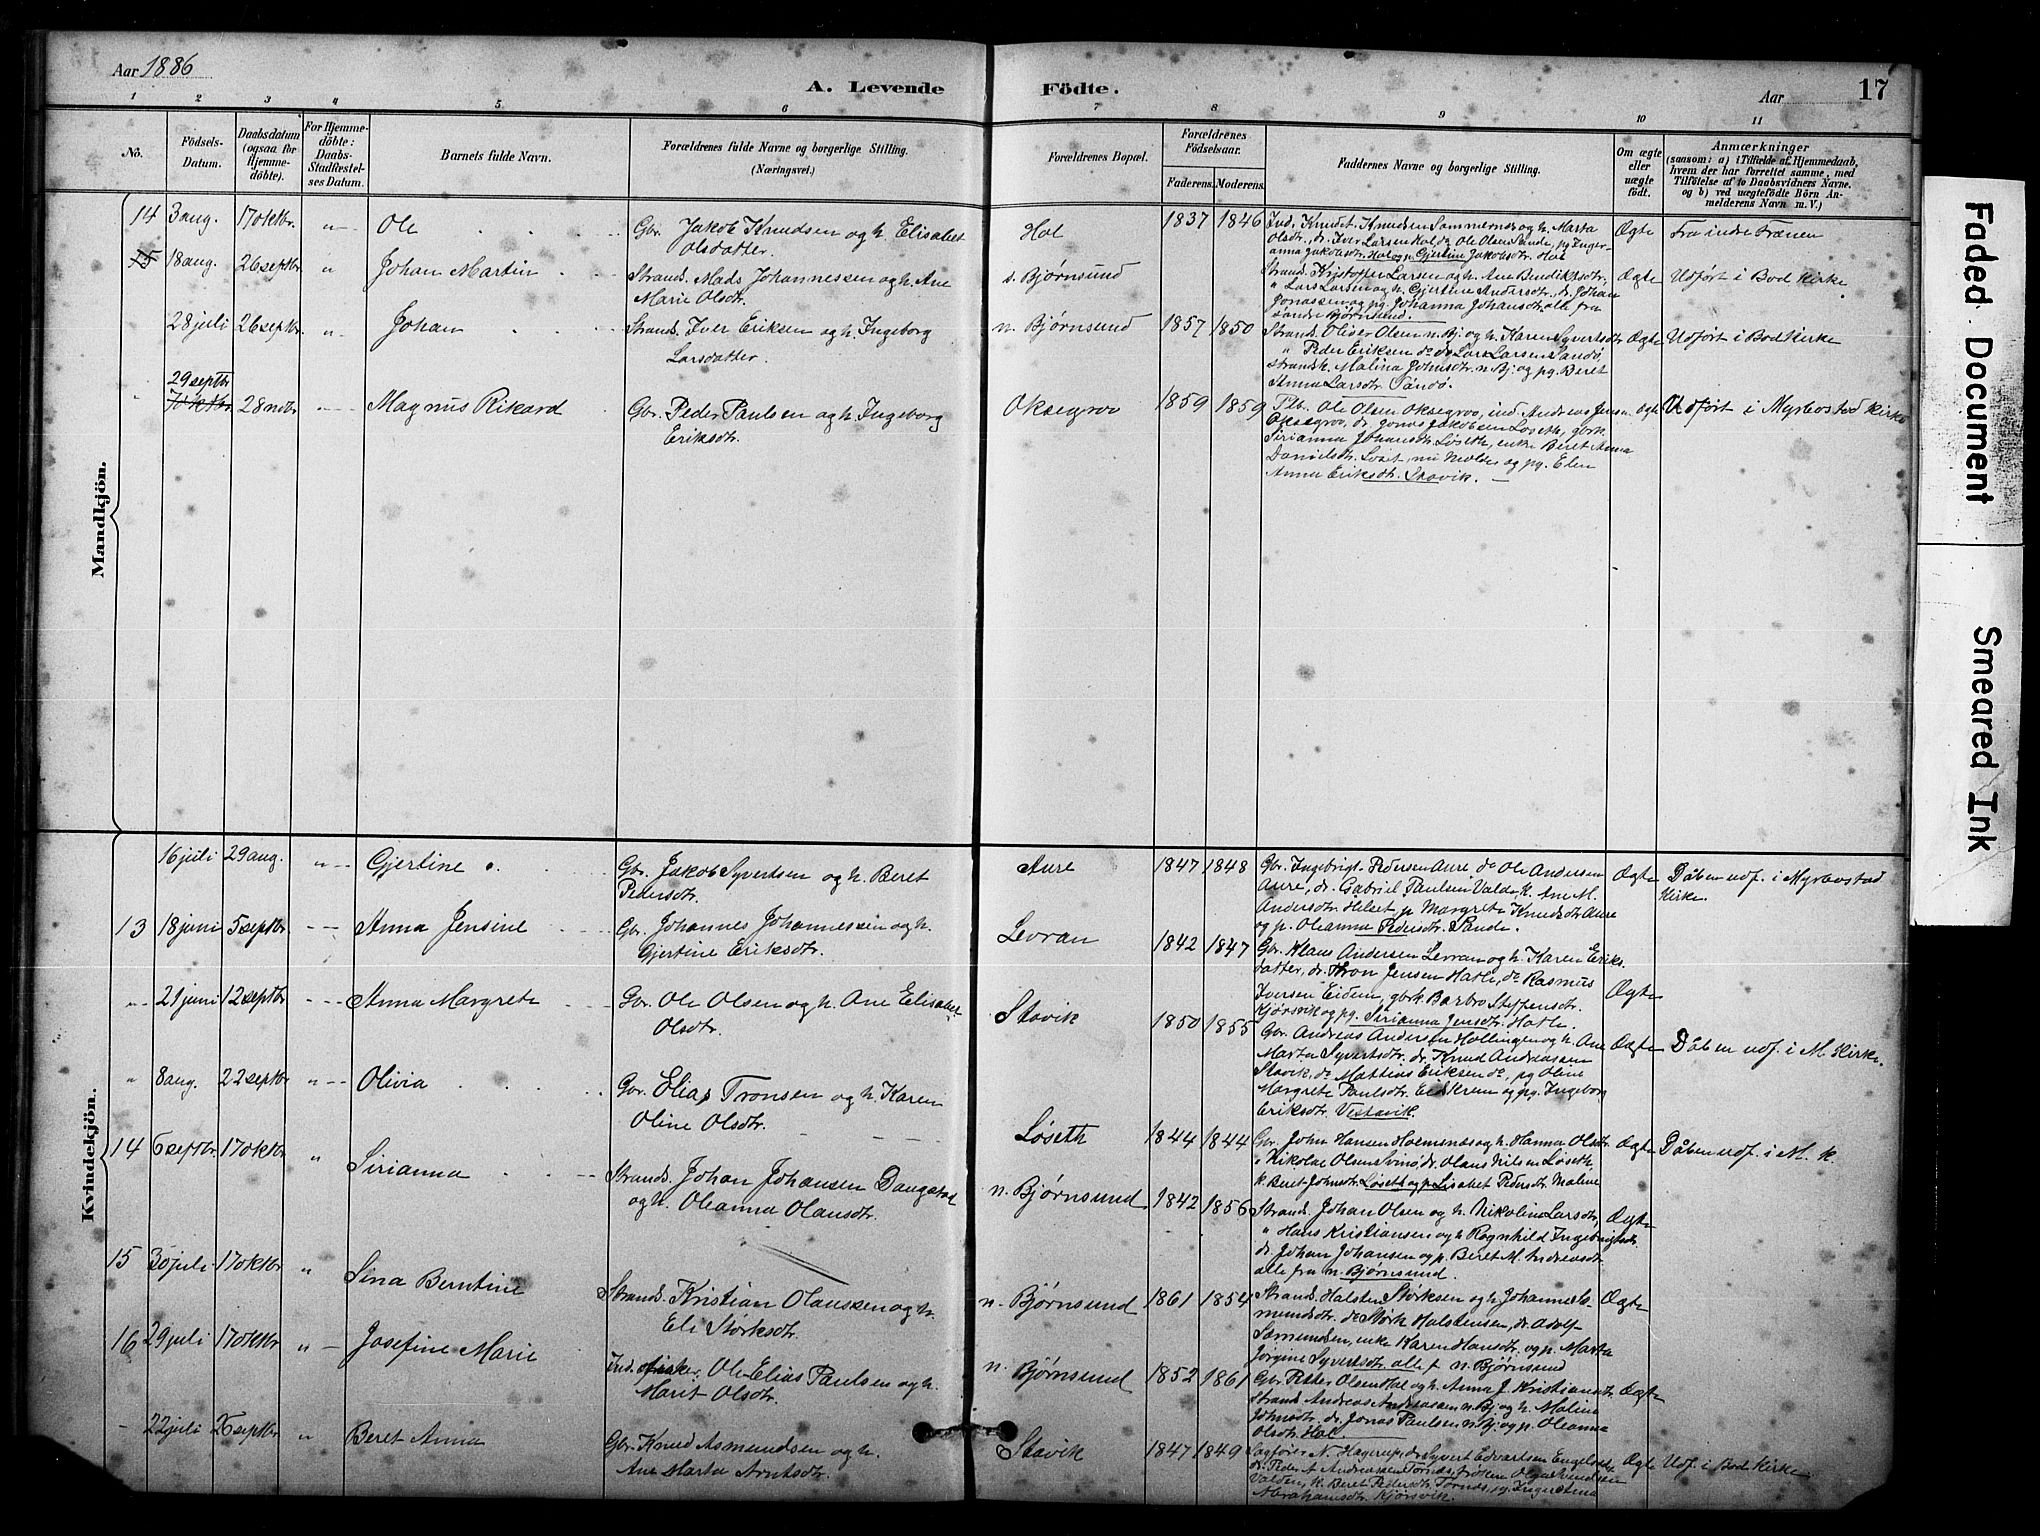 Aar 1886
A. Levende Födte.
Aar
17
1 2 3 4 5 6 7 8 9 10 11
Nö.
Födsels-Datum.
Daabsdatum (ogsaa for Hjemmedöbte).
For Hjemmedöbte: Daabs-Stadfæstelses Datum.
Barnets fulde Navn.
Forældrenes fulde Navne og borgerlige Stilling. (Næringsvei.)
Forældrenes Bopæl.
Forældrenes Födselsaar.
Faderens. Moderens.
Faddernes Navne og borgerlige Stilling.
Om ægte eller uægte födt.
Anmærkninger
(saasom: a) i Tilfælde af Hjemmedaab, hvem der har forrettet samme, med Tilföielse af to Daabsvidners Navne, og b) ved uægtefödte Börn Anmelderens Navn m. V.)
Mandkjön.
14 3 aug. 17 oktbr. " Ole Gbr. Jakob Knudsen og h. Elisabet Olsdatter. Hol 1837 1846 Ind. Knudt. Knudsen Sammernæs og h. Marta
Olsdtr., dr. Iver Larsen Hol, ds Ole Olsen Sande, pg Inger-
anna Jakobsdtr. Hol og p. Gjertine Jakobsdtr. Hol Ægte Fra indre Frænen
15 18 aug. 26 septbr. " Johan Martin Strands. Mads Johannessen og h. Ane Marie Olsdtr. s. Bjørnsund
Strands. Kristoffer Larsen og h. Ane Bendiksdtr.,
" Lars Larsen og h. Gjertine Andersdtr., dr. Johan
Jonassen og pg. Johanna Johansdtr. alle fra
søndre Bjørnsund. Ægte Udført i Bod Kirke.
28 juli 26 septbr. " Johan Strands. Iver Eriksen og h. Ingeborg Larsdatter. n. Bjørnsund 1857 1850
Strands. Oliver Olsen n. Bj. og h. Karen Syvertsdtr.
" Peder Eriksen ds dr Lars Larsen Sandø,
Strandsk. Malina Johnsdtr. n. Bj. og pg. Beret
Anna Larsdtr. Sandø. Ægte Udført i Bod Kirke
29 septbr. 7 oktbr. 28 novbr. Magnus Rikard Gbr. Peder Paulsen og h. Ingeborg Eriksdtr. Oksegrov 1859 1859
Flb. Ole Olsen Oksegrov, ind. Andreas Jensen
Oksegrov, dr. Jonas Jakobsen Løseth, gbrk.
Sirianna Johansdtr. Løseth, enke Beret Anna
Danielsdtr. Løset, nu Molde, og pg. Elen
Anna Eriksdtr. Stavik. ægte Udført i Myrbostad Kirke
Kvindekjön.
16 juli 29 aug. " Gjertine Gbr. Jakob Syvertsen og h. Beret Pedersdtr. Aure 1847 1848
Gbr. Ingebrigt Pedersen Aure ds Ole Andersen
Aure, dr. Gabriel Paulsen Valde, k. Ane M.
Andersdtr. Helset p. Margrete Knudsdtr. Aure
og p. Oleanna Pedersdtr. Sande. Ægte Dåben udf. i Myrbostad Kirke.
13 18 juni 5 septbr Anna Jensine Gbr. Johannes Johannessen og h. Gjertine Eriksdtr. Levran 1842 1847
Gbr. Klaus Andersen Levran og h. Karen Eriks
datter, dr. Tron Jensen Hatle, ds Rasmus
Iversen Eidem, gbrk. Barbro Steffensdtr.
Kjørsvik og pg. Sirianna Jensdtr. Hatle. Ægte
21 juni 12 septbr Anna Margrete Gbr. Ole Olsen og h. Ane Elisabet Olsdtr. Stavik 1850 1855
Gbr. Andreas Andersen Hollingen og h. Ane
Marta Syvertsdtr., dr. Knud Andreassen
Stavik, ds Mattias Eriksen ds, pg Oline
Margrete Paulsdtr. Eidskrem og pg. Ingeborg
Eriksdtr. Vestavik. Ægte Dåben udf. i M. Kirke.
" 8 aug. 22 septbr " Olivia Gbr. Elias Tronsen og h. Karen Oline Olsdtr. Løseth 1844 1844
Gbr. John Hansen Holmenæs og h. Hanna Olsdtr.
" Nikolai Olsen Svinø, dr. Olaus Nilsen Løseth,
k. Beret Johnsdtr. Løseth og p. Lisabet Pedersdtr. Malme Ægte Dåben udf. i M. k.
14 6 septbr. 17 oktbr " Sirianna Strands. Johan Johansen Daugstad og h. Oleanna Olausdtr. n. Bjørnsund 1842 1856
Strands. Johan Olsen og h. Nikolina Larsdtr.,
" Hans Kristiansen og h Ragnhild Ingebrigtsdtr.
dr. Johan Johansen og p. Beret M. Andreasdtr.
alle fra n. Bjørnsund. Ægte
15 30 juli 17 oktbr " Sina Berntine Strands. Kristian Olaussen og h. Eli Størksdtr. n. Bjørnsund 1861 1854
Strands. Halsten Størksen og h. Johanne
mundsdtr. ds Størk Halstensen, dr. Adolf
Samundsen, enke Karen Hansdtr. og p. Marta
Jørgine Syvertsdtr. alle f. n. Bjørnsund Ægte
16 29 juli 17 oktbr " Josefine Marie Ind. Ole Elias Paulsen og h. Marit Olsdtr. n. Bjørnsund 1852 1861
Gbr. Peder Olsen Hol og h. Anna J. Kristiansdtr.
Strands. Andreas Andreassen n. Bj. og h. Malina
Johnsdtr. dr. Jonas Paulsen n. Bj. og p. Oleanna
Olsdtr. Hol. Ægte
22 juli 26 septbr " Beret Anna Gbr. Knud Asmundsen og h. Ane Marta Arntsdtr. Stavik 1847 1849
Sagfører N. Hagerup, dr. Syvert Edvartsen
dr. Peder A. Andreassen Tornæs,
Valde, k. Beret Pedersdtr. Tornæs, og
Abrahamsdtr. Kjørsvik. Ægte Udf. i Bod Kirke
Faded Document
Smeared Ink